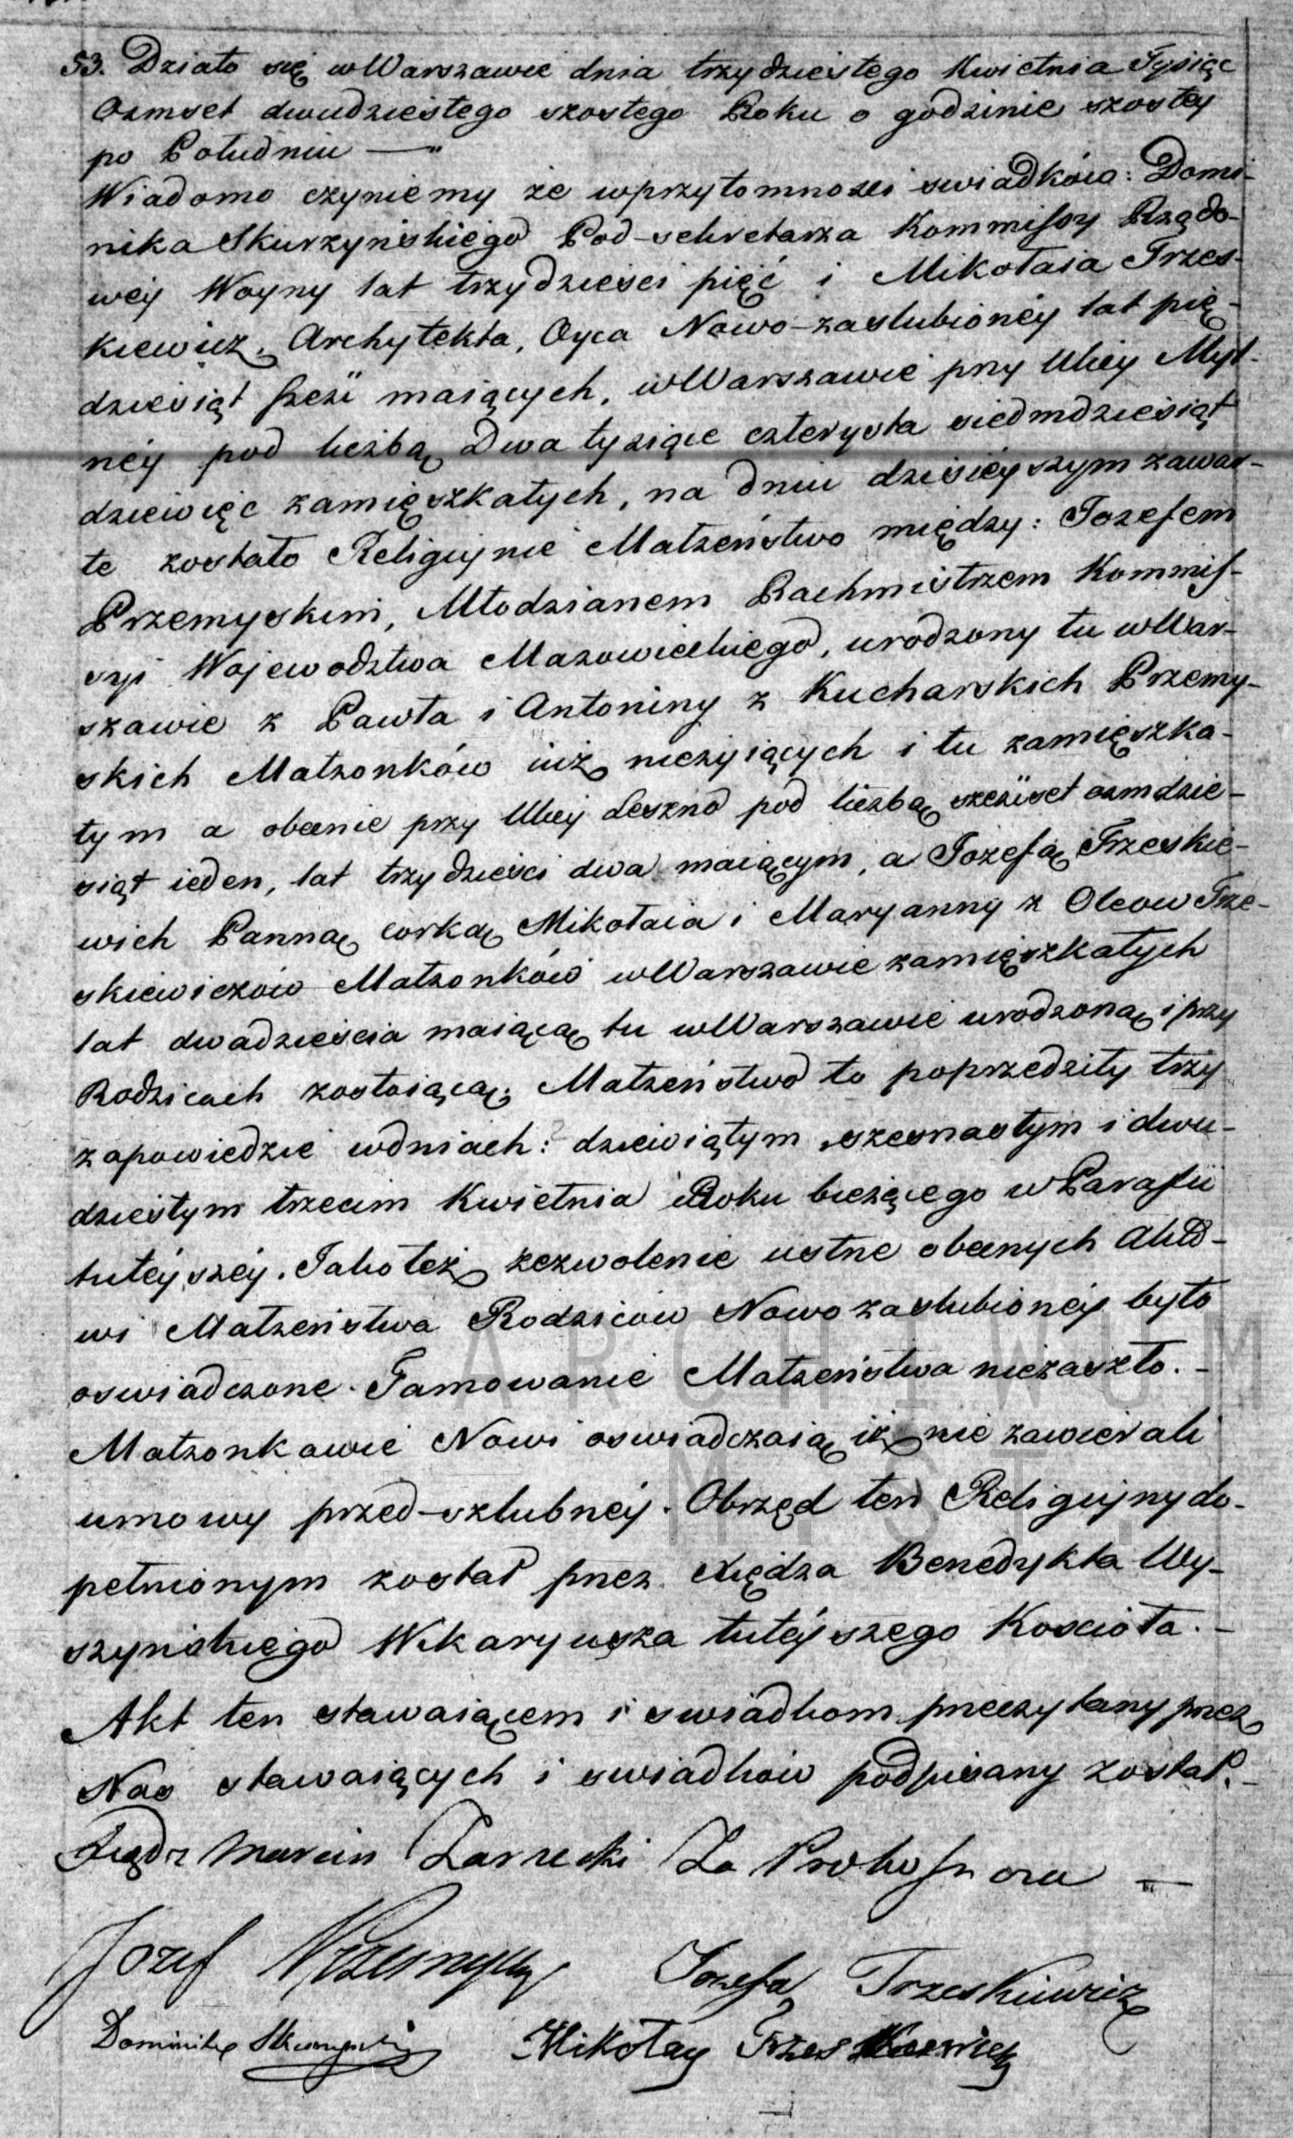 53. Działo się w Warszawie dnia trzydziestego Kwietnia Tysiąc
Ośmset dwudziestego szostego Roku o godzinie szostey
po Południu —"
Wiadomo czyniemy że wprzytomnosci swiadków: Domi-
nika Skurzyńskiego Pod-sekretarza Kommissyi Rządo-
wéy Woyny lat trzydziesci pięć i Mikołaia Trzes-
kiewicz, Archytekta, Oyca Nowo-zaslubionéy lat pię-
dziesiąt sześć maiących, w Warszawie przy Ulicy Myl-
néy pod liczbą Dwa tysiące czterysta siedmdziesiąt
dziewięc zamięszkałych, na dniu dzisieyszym zawar-
te zostało Religiynie Małzeństwo między: Jozefem
Przemyskim, Młodzianem Rachmistrzem Kommis-
syi Wojewodztwa Mazowieckiego, urodzony tu w War-
szawie z Pawła i Antoniny z Kucharskich Przemy-
skich Małzonków iuż nieżyiących i tu zamięszka-
łym a obecnie przy Ulicy Leszno pod liczbą sześćset osmdzie-
siąt ieden, lat trzydziesci dwa maiącym, a Jozefą Trzeskie-
wich Panną corką Mikołaia i Maryanny z Olcow Trze-
skiewiczów Małzonków w Warszawie zamięszkałych
lat dwadzieścia maiącą tu w Warszawie urodzoną i przy
Rodzicach zostaiącą; Małzeństwo to poprzedziły trzy
zapowiedzie wdniach: dziewiątym szesnastym i dwu-
dziestym trzecim Kwietnia Roku bieżącego w Parafii
tutéyszéy. Jakoteż zezwolenie ustne obecnych Akto-
wi Małzeństwa Rodziców Nowo zaslubionéy było
oswiadczone. Tamowanie Małzeństwa niezaszło. -
Małzonkowie Nowi oswiadczaią iż nie zawierali
umowy przed-szlubnéy. Obrzęd ten Religiyny do-
pełnionym został przez Xiędza Benedykta Wy-
szyńskiego Wikaryusza tutéyszego Koscioła. -
Akt ten stawaiącem i swiadkom przeczytany przez
Nas stawaiących i swiadków podpisany został. -
Xiądz Marcin Zarzecki Za Proboszcza —
Jozef Przemyski Jozefa Trzeskiewicz
Dominik Skurzyński Mikołay Trzeskiewicz
ARCHIWUM
M. ST.